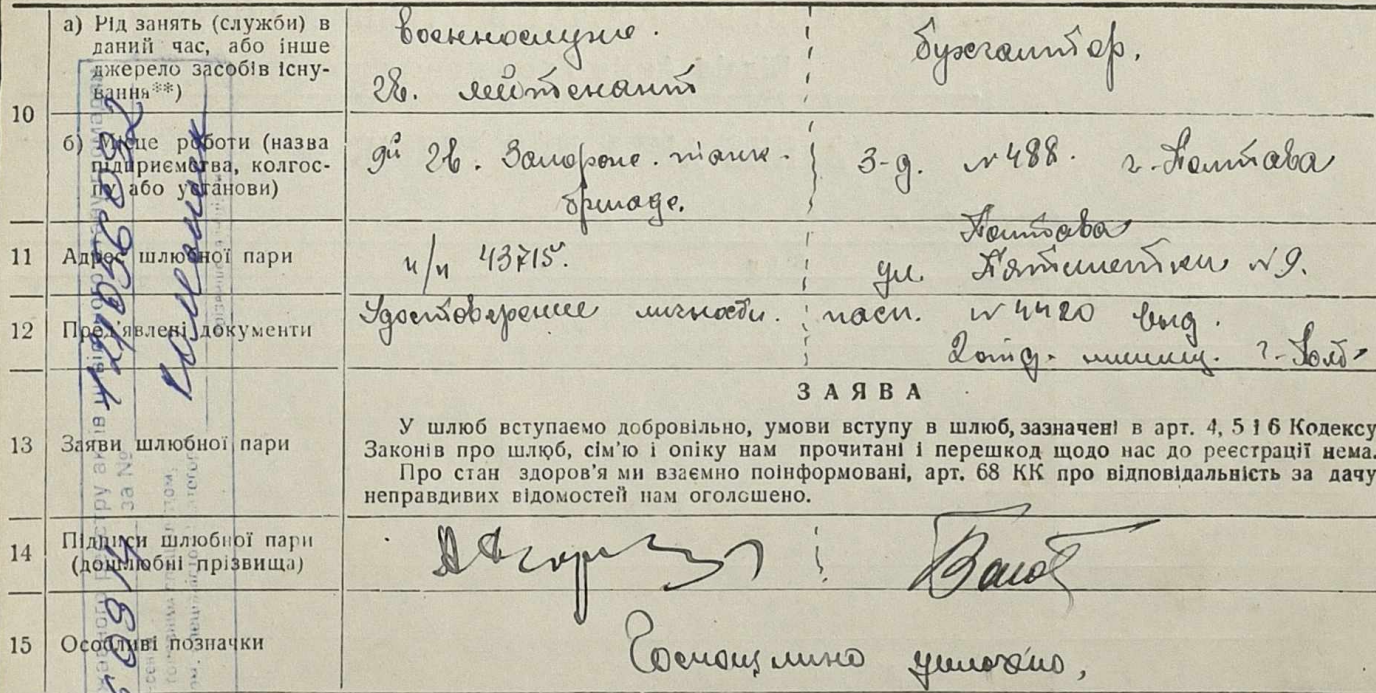 10
а) Рід занять (служби) в
даний час, або інше
джерело засобів існу-
вання**)
военнослуж.
гв. лейтенант
бухгалтер.
б) Місце роботи (назва
підприємства, колгос-
пу або установи)
9й гв. Запорож. танк.
бригада.
З-д. №488. г. Полтава
11
Адрес шлюбної пари
п/п 43715.
Полтава
ул. Пятилетки №9.
12
Пред'явлені документи
Удостоверение личности.
пасп. №4420 выд.
2 отд. милиц. г. Полт
13
Заяви шлюбної пари
ЗАЯВА
У шлюб вступаємо добровільно, умови вступу в шлюб, зазначені в арт. 4, 5 і 6 Кодексу
Законів про шлюб, сім'ю і опіку нам прочитані і перешкод щодо нас до реєстрації нема.
Про стан здоров'я ми взаємно поінформовані, арт. 68 КК про відповідальність за дачу
неправдивих відомостей нам оголошено.
14
Підписи шлюбної пари
(дошлюбні прізвища)
15
Особливі позначки
Госпошлина
за №